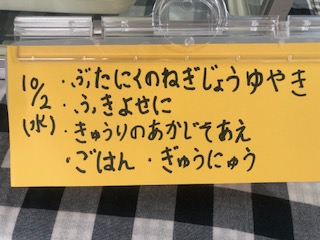 10/2 ・ぶたにくのねぎじょうゆやき
(水) ・ふきよせに
・きゅうりのあかじそあえ
・ごはん ・ぎゅうにゅう